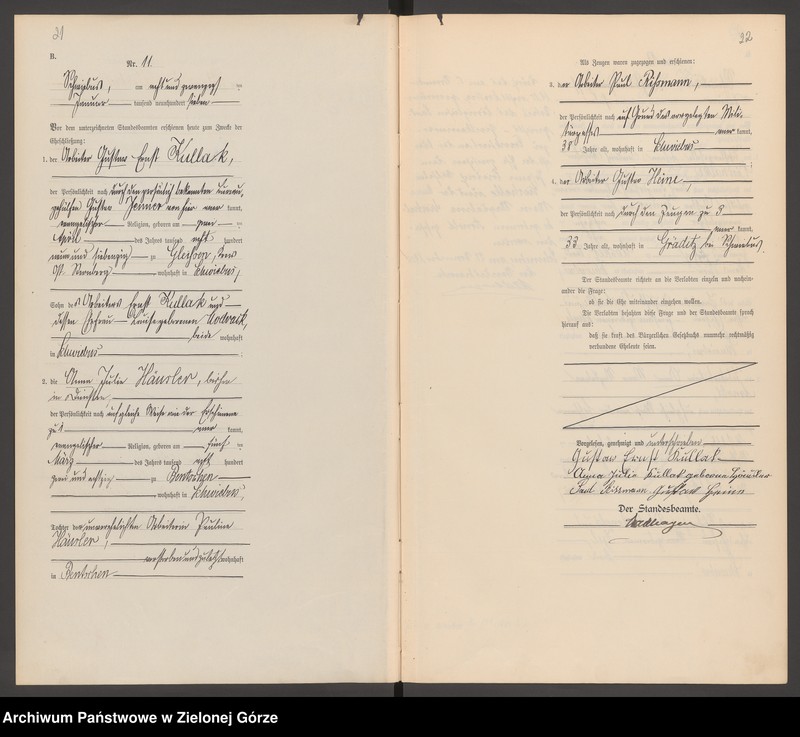 21
B.
Nr. 11.
Schwiebus, am acht und zwanzigsten
Januar tausend neunhundert sieben
Vor dem unterzeichneten Standesbeamten erschienen heute zum Zwecke der
Eheschließung:
1. der Arbeiter Gustav Ernst Kullak,
der Persönlichkeit nach durch den persönlich bekannten
Gustav von hier aner kannt,
evangelischer Religion, geboren am
April des Jahres tausend acht hundert
neun und siebenzig zu
wohnhaft in Schwiebus,
Sohn des Arbeiters Ernst Kullak und
dessen Ehefrau Louise geborenen
beide wohnhaft
in Schwiebus
2. die Anna Julie Häusler,
der Persönlichkeit nach auf gleiche Weise wie der Erschienene
zu 1 aner kannt,
evangelischer Religion, geboren am fünften
März des Jahres tausend acht hundert
zwei und achtzig zu Bentschen
wohnhaft in Schwiebus,
Tochter der unverehelichten Arbeiterin Pauline
Häusler,
verstorben und zuletzt wohnhaft
in Bentschen
22
Als Zeugen waren zugezogen und erschienen:
3. der Arbeiter Paul Rißmann,
der Persönlichkeit nach auf Grund des vorgelegten Mili-
tärpasses aner kannt,
38 Jahre alt, wohnhaft in Schwiebus
;
4. der Arbeiter Gustav Heine,
der Persönlichkeit nach durch den Zeugen zu 3
aner kannt,
33 Jahre alt, wohnhaft in Gräditz bei Schwiebus.
Der Standesbeamte richtete an die Verlobten einzeln und nachein-
ander die Frage:
ob sie die Ehe miteinander eingehen wollen.
Die Verlobten bejahten diese Frage und der Standesbeamte sprach
hierauf aus:
daß sie kraft des Bürgerlichen Gesetzbuchs nunmehr rechtmäßig
verbundene Eheleute seien.
Vorgelesen, genehmigt und unterschrieben
Gustav Ernst Kullak
Anna Julie Kullak geborene Häusler
Paul Rissmann Gustav Heine
Der Standesbeamte.
Archiwum Państwowe w Zielonej Górze